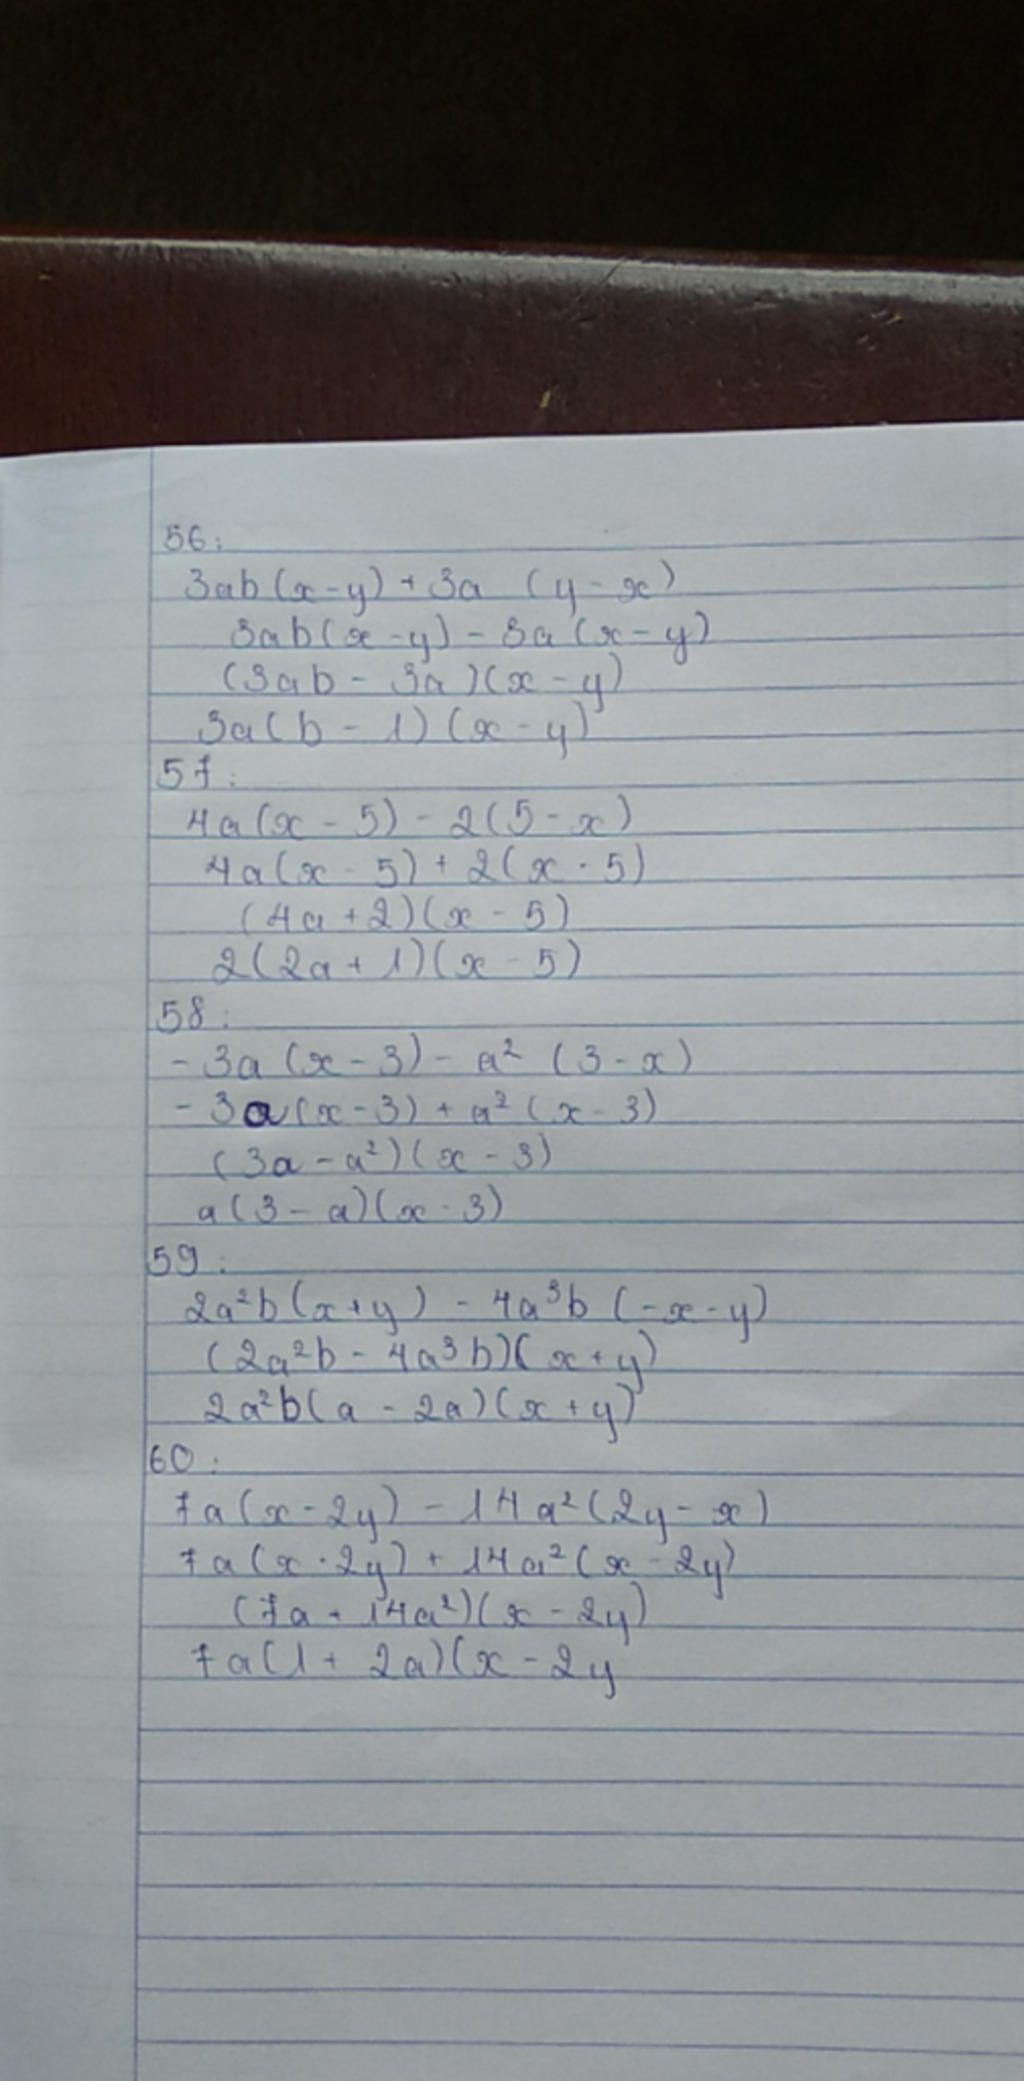 56:
3ab(x-y) + 3a (y-x)
3ab(x-y) - 3a(x-y)
(3ab - 3a)(x-y)
3a(b - 1)(x-y)
57:
4a(x - 5) - 2(5 - x)
4a(x - 5) + 2(x - 5)
(4a + 2)(x - 5)
2(2a + 1)(x - 5)
58:
- 3a (x - 3) - a² (3 - x)
- 3a(x - 3) + a² (x - 3)
(3a - a²)(x - 3)
a(3 - a)(x - 3)
59:
2a²b(x+y) - 4a³b (-x-y)
(2a²b - 4a³b)(x+y)
2a²b(a - 2a)(x+y)
60:
7a(x-2y) - 14a²(2y-x)
7a(x-2y) + 14a²(x-2y)
(7a + 14a²)(x-2y)
7a(1 + 2a)(x-2y